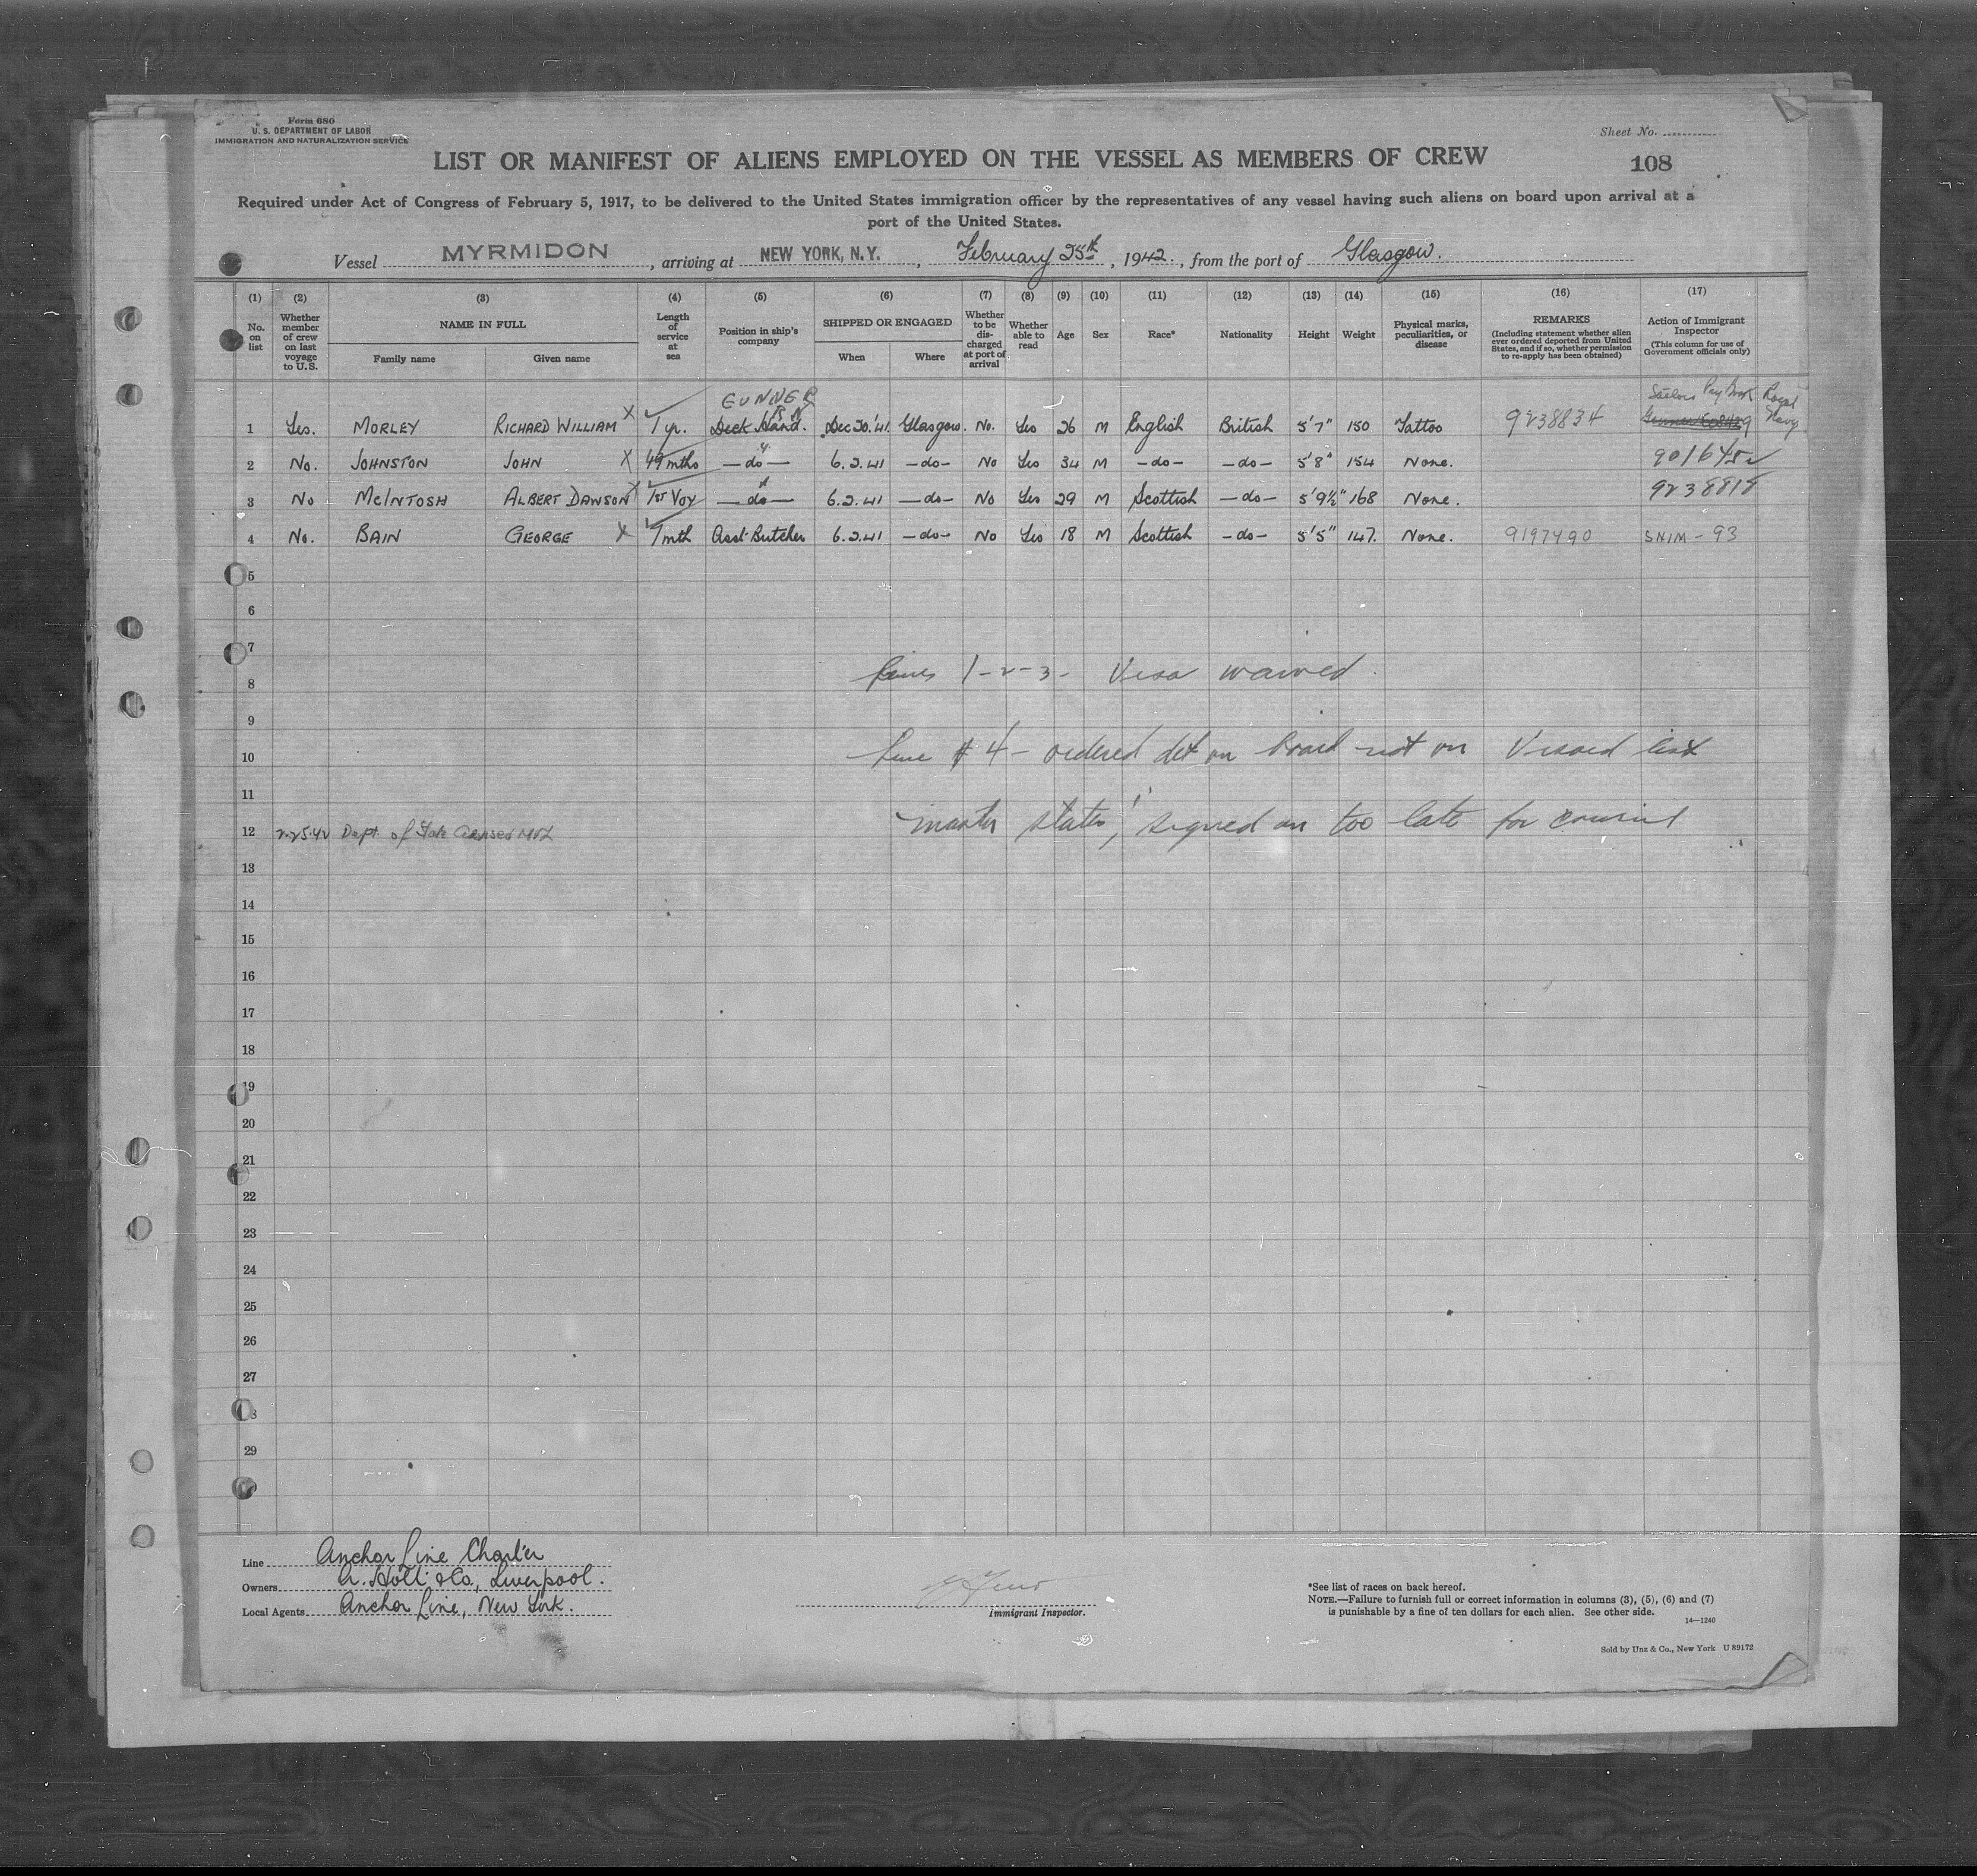 Form 680
U. S. DEPARTMENT OF LABOR
IMMIGRATION AND NATURALIZATION SERVICE
Sheet No.
108
LIST OR MANIFEST OF ALIENS EMPLOYED ON THE VESSEL AS MEMBERS OF CREW
Required under Act of Congress of February 5, 1917, to be delivered to the United States immigration officer by the representatives of any vessel having such aliens on board upon arrival at a
port of the United States.
Vessel MYRMIDON, arriving at NEW YORK, N.Y., February 25th, 1942, from the port of Glasgow.
(1) (2) (3) (4) (5) (6) (7) (8) (9) (10) (11) (12) (13) (14) (15) (16) (17)
No. on list
Whether member of crew on last voyage to U. S.
NAME IN FULL
Family name
Given name
Length of service at sea
Position in ship's company
SHIPPED OR ENGAGED
When
Where
Whether to be discharged at port of arrival
Whether able to read
Age
Sex
Race*
Nationality
Height
Weight
Physical marks, peculiarities, or disease
REMARKS
(Including statement whether alien ever ordered deported from United States, and if so, whether permission to re-apply has been obtained)
Action of Immigrant Inspector
(This column for use of Government officials only)
GUNNER Sailors Pay Book Royal Navy
1 Yes. MORLEY RICHARD WILLIAM X 1 yr. Deck Hand. Dec 20.'41 Glasgow. No. Yes 26 M English British 5'7" 150 Tattoo 9238834
2 No. JOHNSTON JOHN X 49 mths —do— 6.2.41 —do— No Yes 34 M —do— —do— 5'8" 154 None. 901645
3 No McINTOSH ALBERT DAWSON X 1st Voy —do— 6.2.41 —do— No Yes 29 M Scottish —do— 5'9½" 168 None. 9238818
4 No. BAIN GEORGE X 7 mth Asst. Butcher 6.2.41 —do— No Yes 18 M Scottish —do— 5'5" 147. None. 9197490 SNIM - 93
5
6
7
lines 1-2-3- Visa waived.
8
9
line #4 - ordered det on board not on Visaed list
10
11
master states, signed on too late for
12 2-25-42 Dept. of State advised
13
14
15
16
17
18
19
20
21
22
23
24
25
26
27
29
Line Anchor Line Charter
Owners A. Holt & Co., Liverpool.
Local Agents Anchor Line, New York.
Immigrant Inspector.
*See list of races on back hereof.
NOTE.—Failure to furnish full or correct information in columns (3), (5), (6) and (7)
is punishable by a fine of ten dollars for each alien. See other side.
14—1240
Sold by Unz & Co., New York U 89172